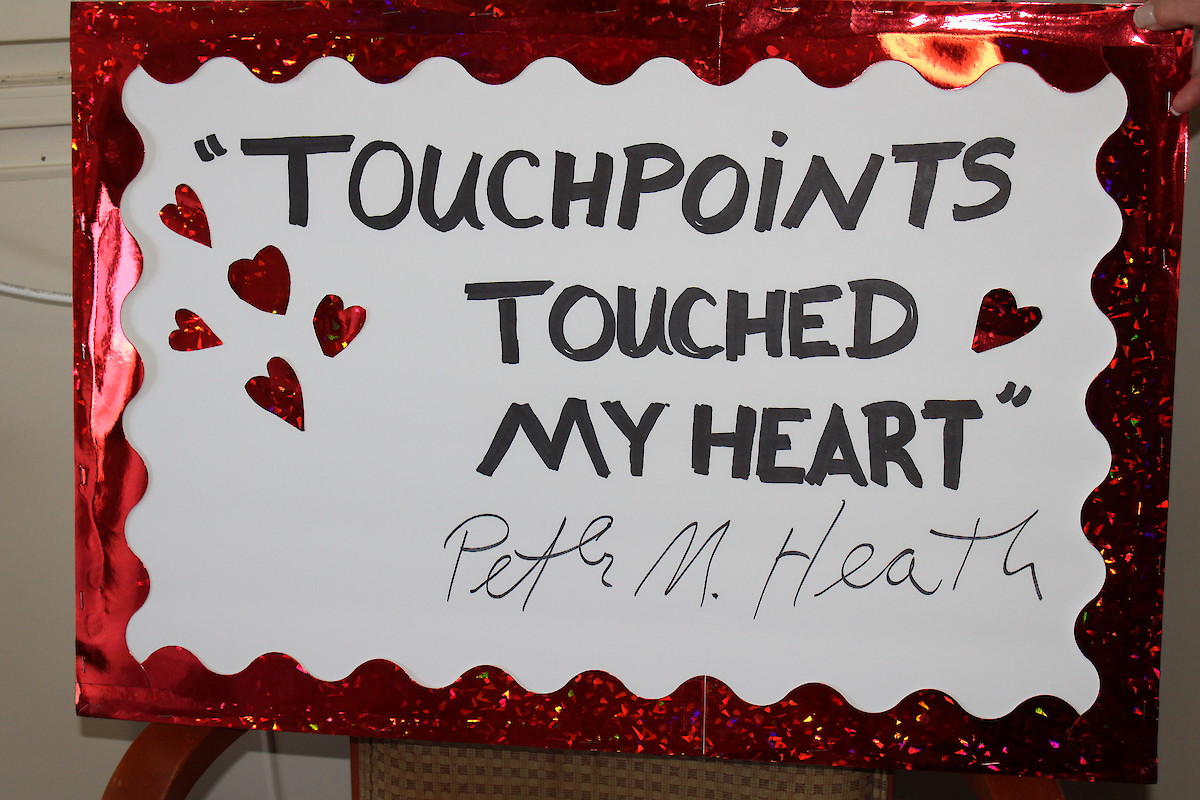 "TOUCHPOiNTS
TOUCHED
MY HEART"
Peter M. Heath